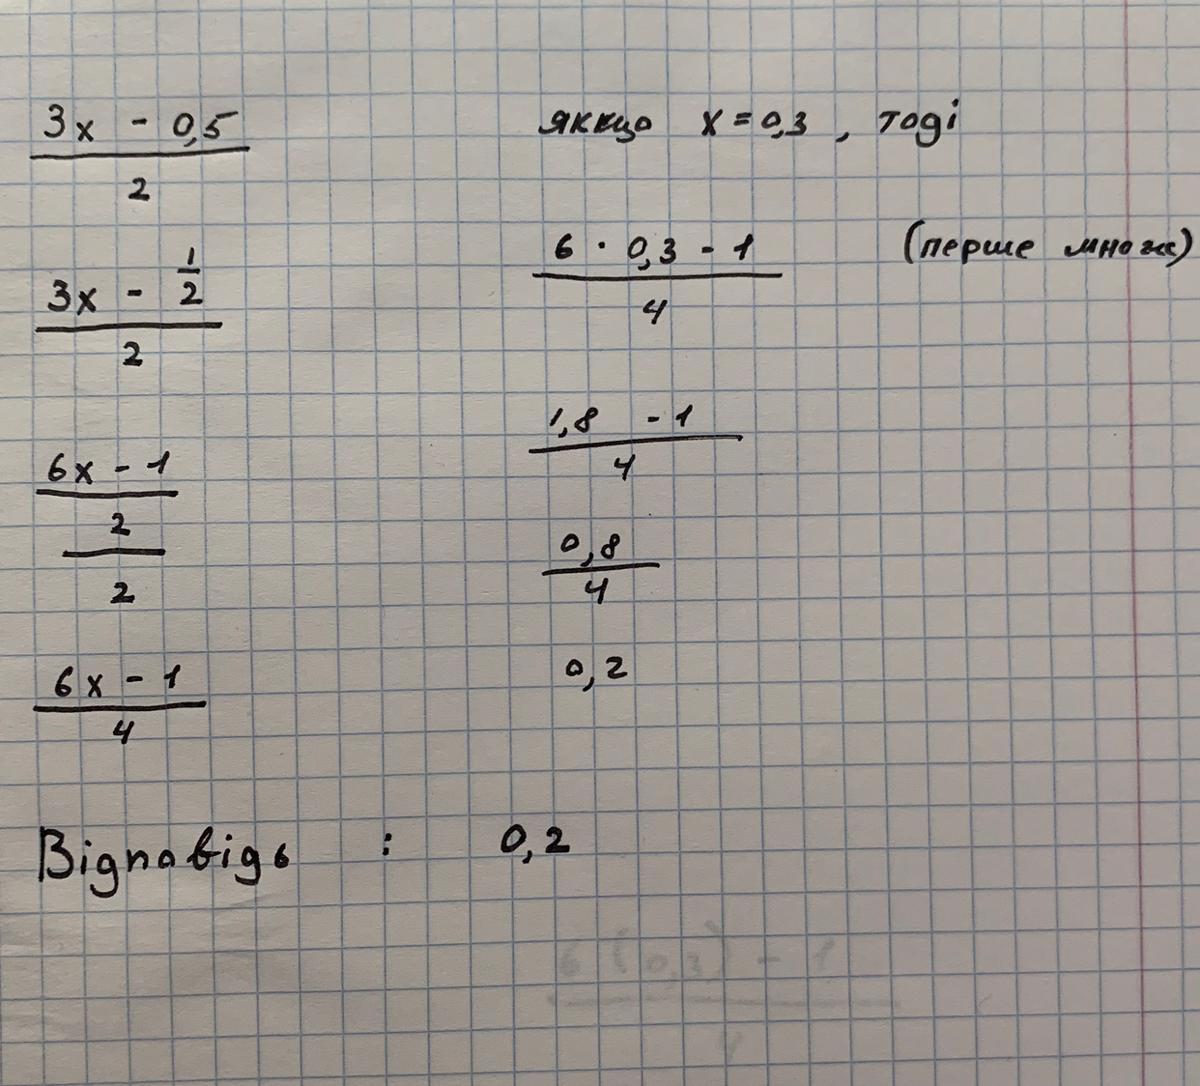 3x - 0,5
2
3x - 1/2
2
6x - 1
2
2
6x - 1
4
якщо x = 0,3 , тоді
6 · 0,3 - 1 (перше множ)
4
1,8 - 1
4
0,8
4
0,2
Відповідь : 0,2
6 (0,3) - 1
4